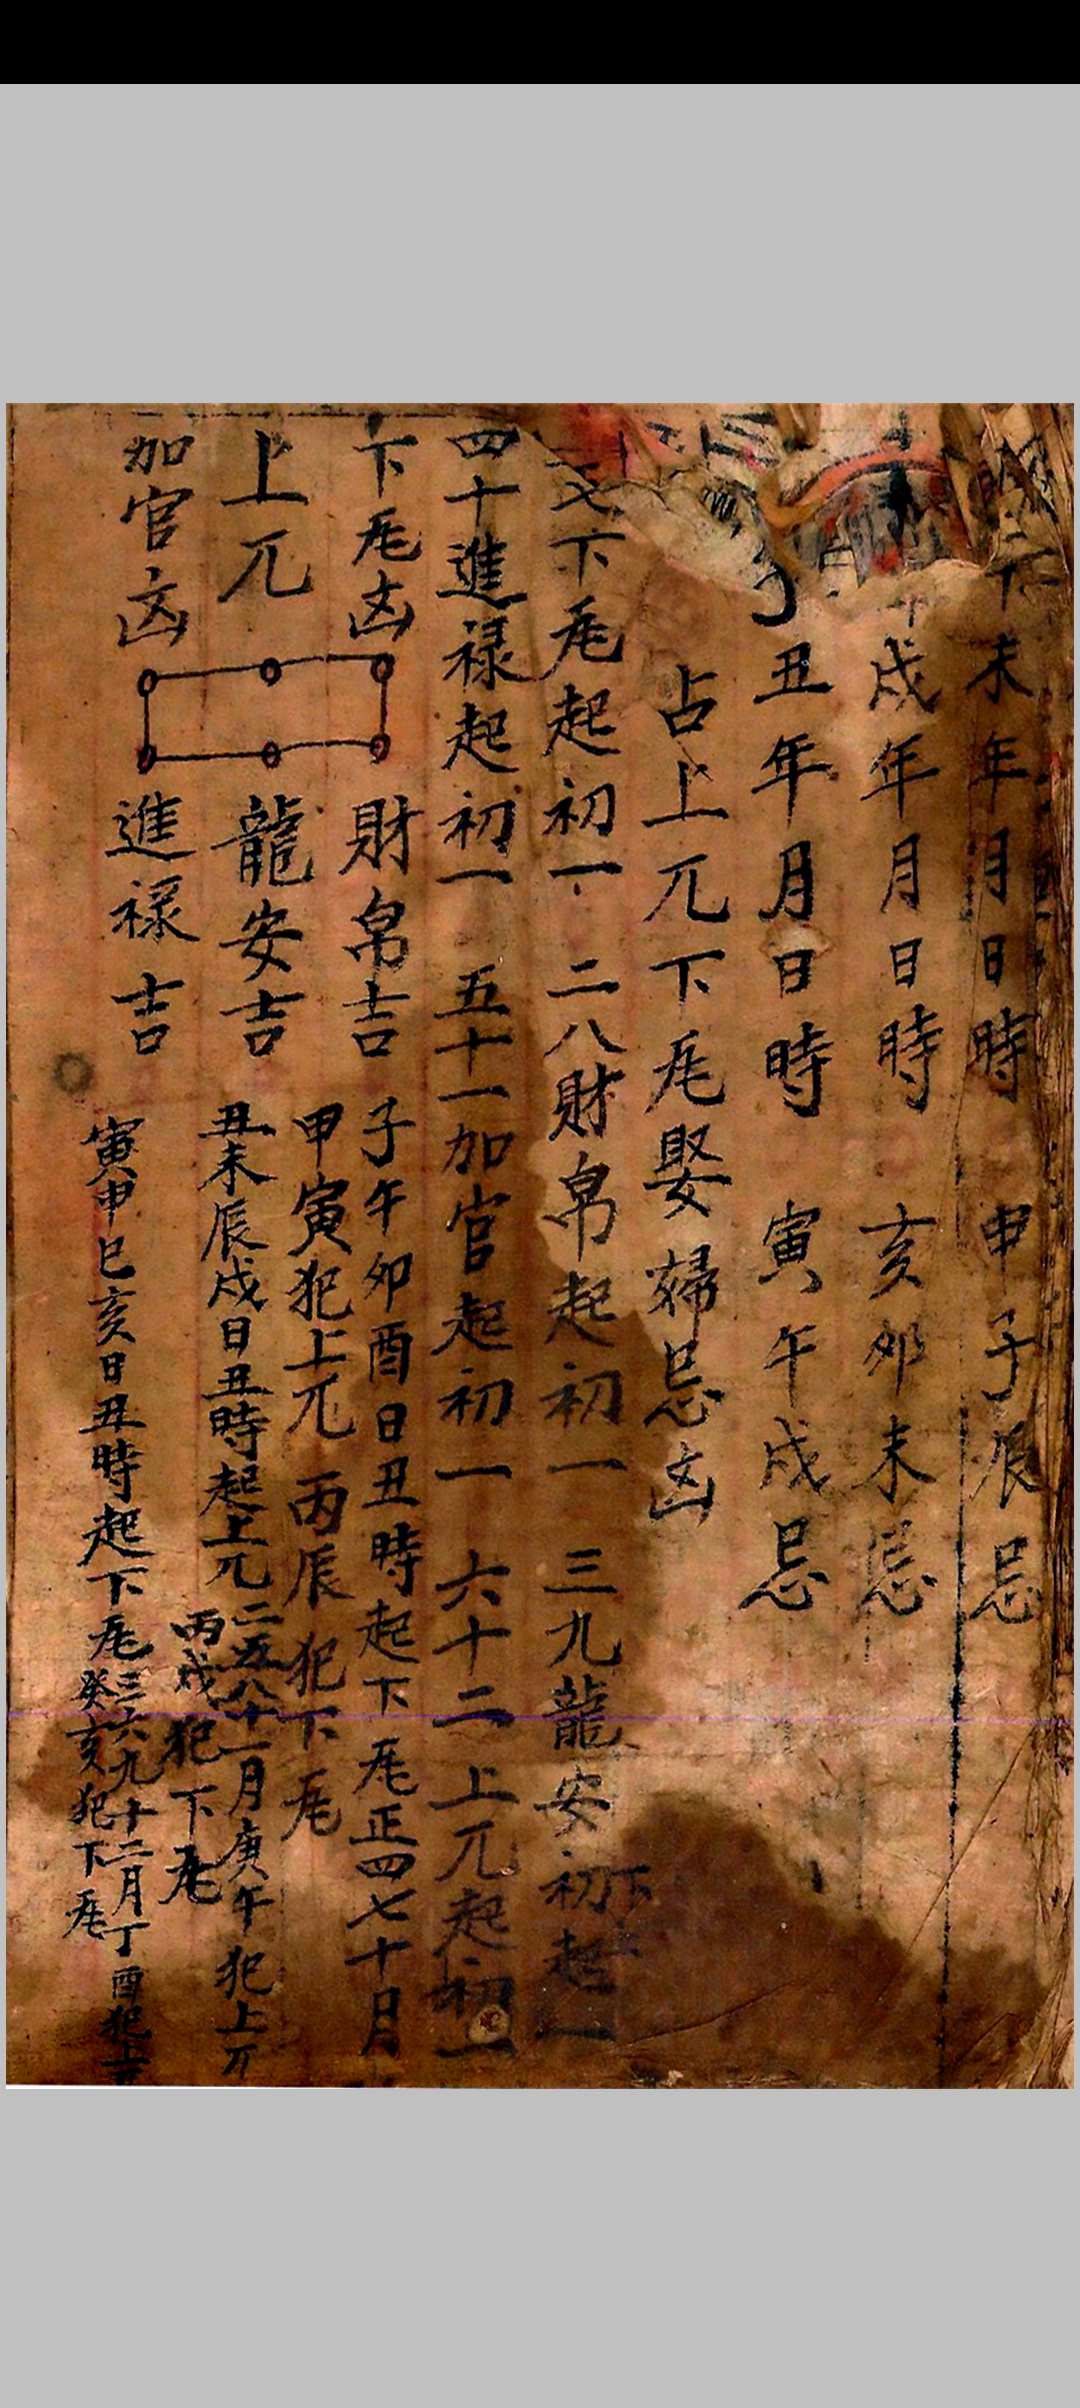 未年月日時 申子辰忌
戌年月日時 亥卯未忌
丑年月日時 寅午戌忌
占上兀下㲋娶婦忌凶
七下㲋起初一 二八財帛起初一 三九龍安初起一
四十進禄起初一 五十一加官起初一 六十二上兀起初一
下㲋凶
財帛吉
上兀
龍安吉
加官凶
進禄吉
子午卯酉日丑時起下㲋正四七十月
甲寅犯上兀 丙辰犯下㲋
丑未辰戌日丑時起上兀二五八十一月庚午犯上兀
丙戌犯下㲋
寅申巳亥日丑時起下㲋三六九十二月丁酉犯上
癸亥犯下㲋